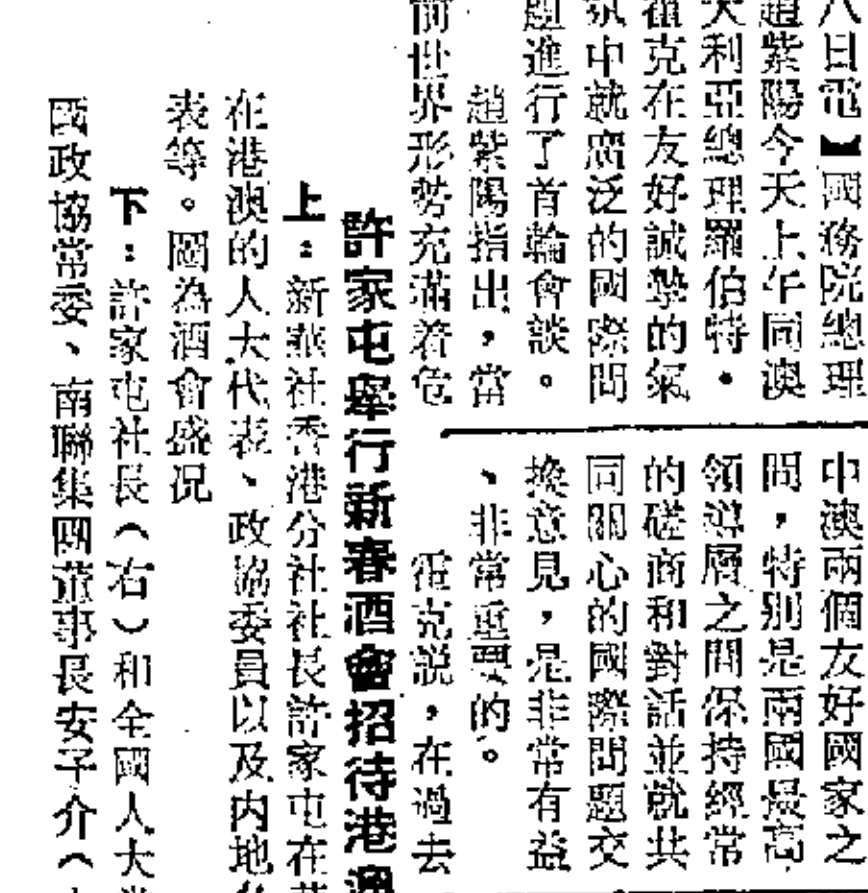 八日電】國務院總理
趙紫陽今天上午同澳
大利亞總理羅伯特·
霍克在友好誠摯的氣
氛中就廣泛的國際問
題進行了首輪會談。
趙紫陽指出,當
前世界形勢充滿着危
中澳兩個友好國家之
間,特別是兩國最高
領導層之間保持經常
的磋商和對話並就共
同關心的國際問題交
換意見,是非常有益
、非常重要的。
霍克說,在過去
許家屯舉行新春酒會招待港澳
上:新華社香港分社社長許家屯在
在港澳的人大代表、政協委員以及内地
表等。圖為酒會盛况
下:許家屯社長(右)和全國人大常
國政協常委、南聯集團董事長安子介(